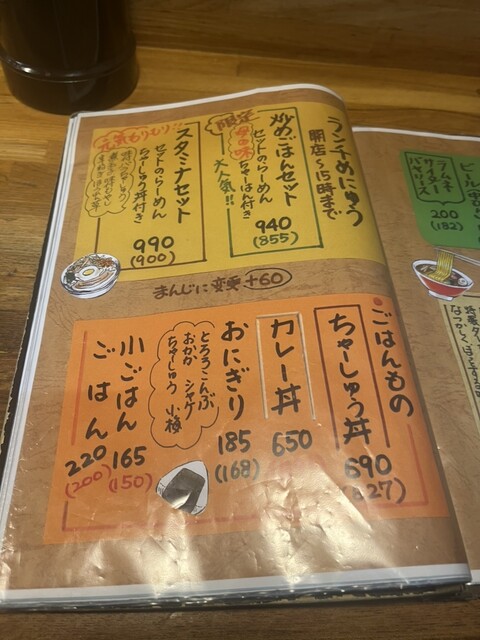 ランチめにゅう
開店〜15時まで
限定
炒めごはんセット
セットのらーめん
母の味ちゃーはん付き
大人気!!
940
(855)
元気もりもり!!
スタミナセット
セットのらーめん
ちゃーしゅう丼付き
990
(900)
まんじに変更 +60
ごはんもの
ちゃーしゅう丼
690
(627)
カレー丼
650
おにぎり
とろろこんぶ
おかか シャケ
ちゃーしゅう 小梅
185
(168)
小ごはん
165
(150)
ごはん
220
(200)
ビール
ラムネ
サイダー
バヤリース
200
(182)